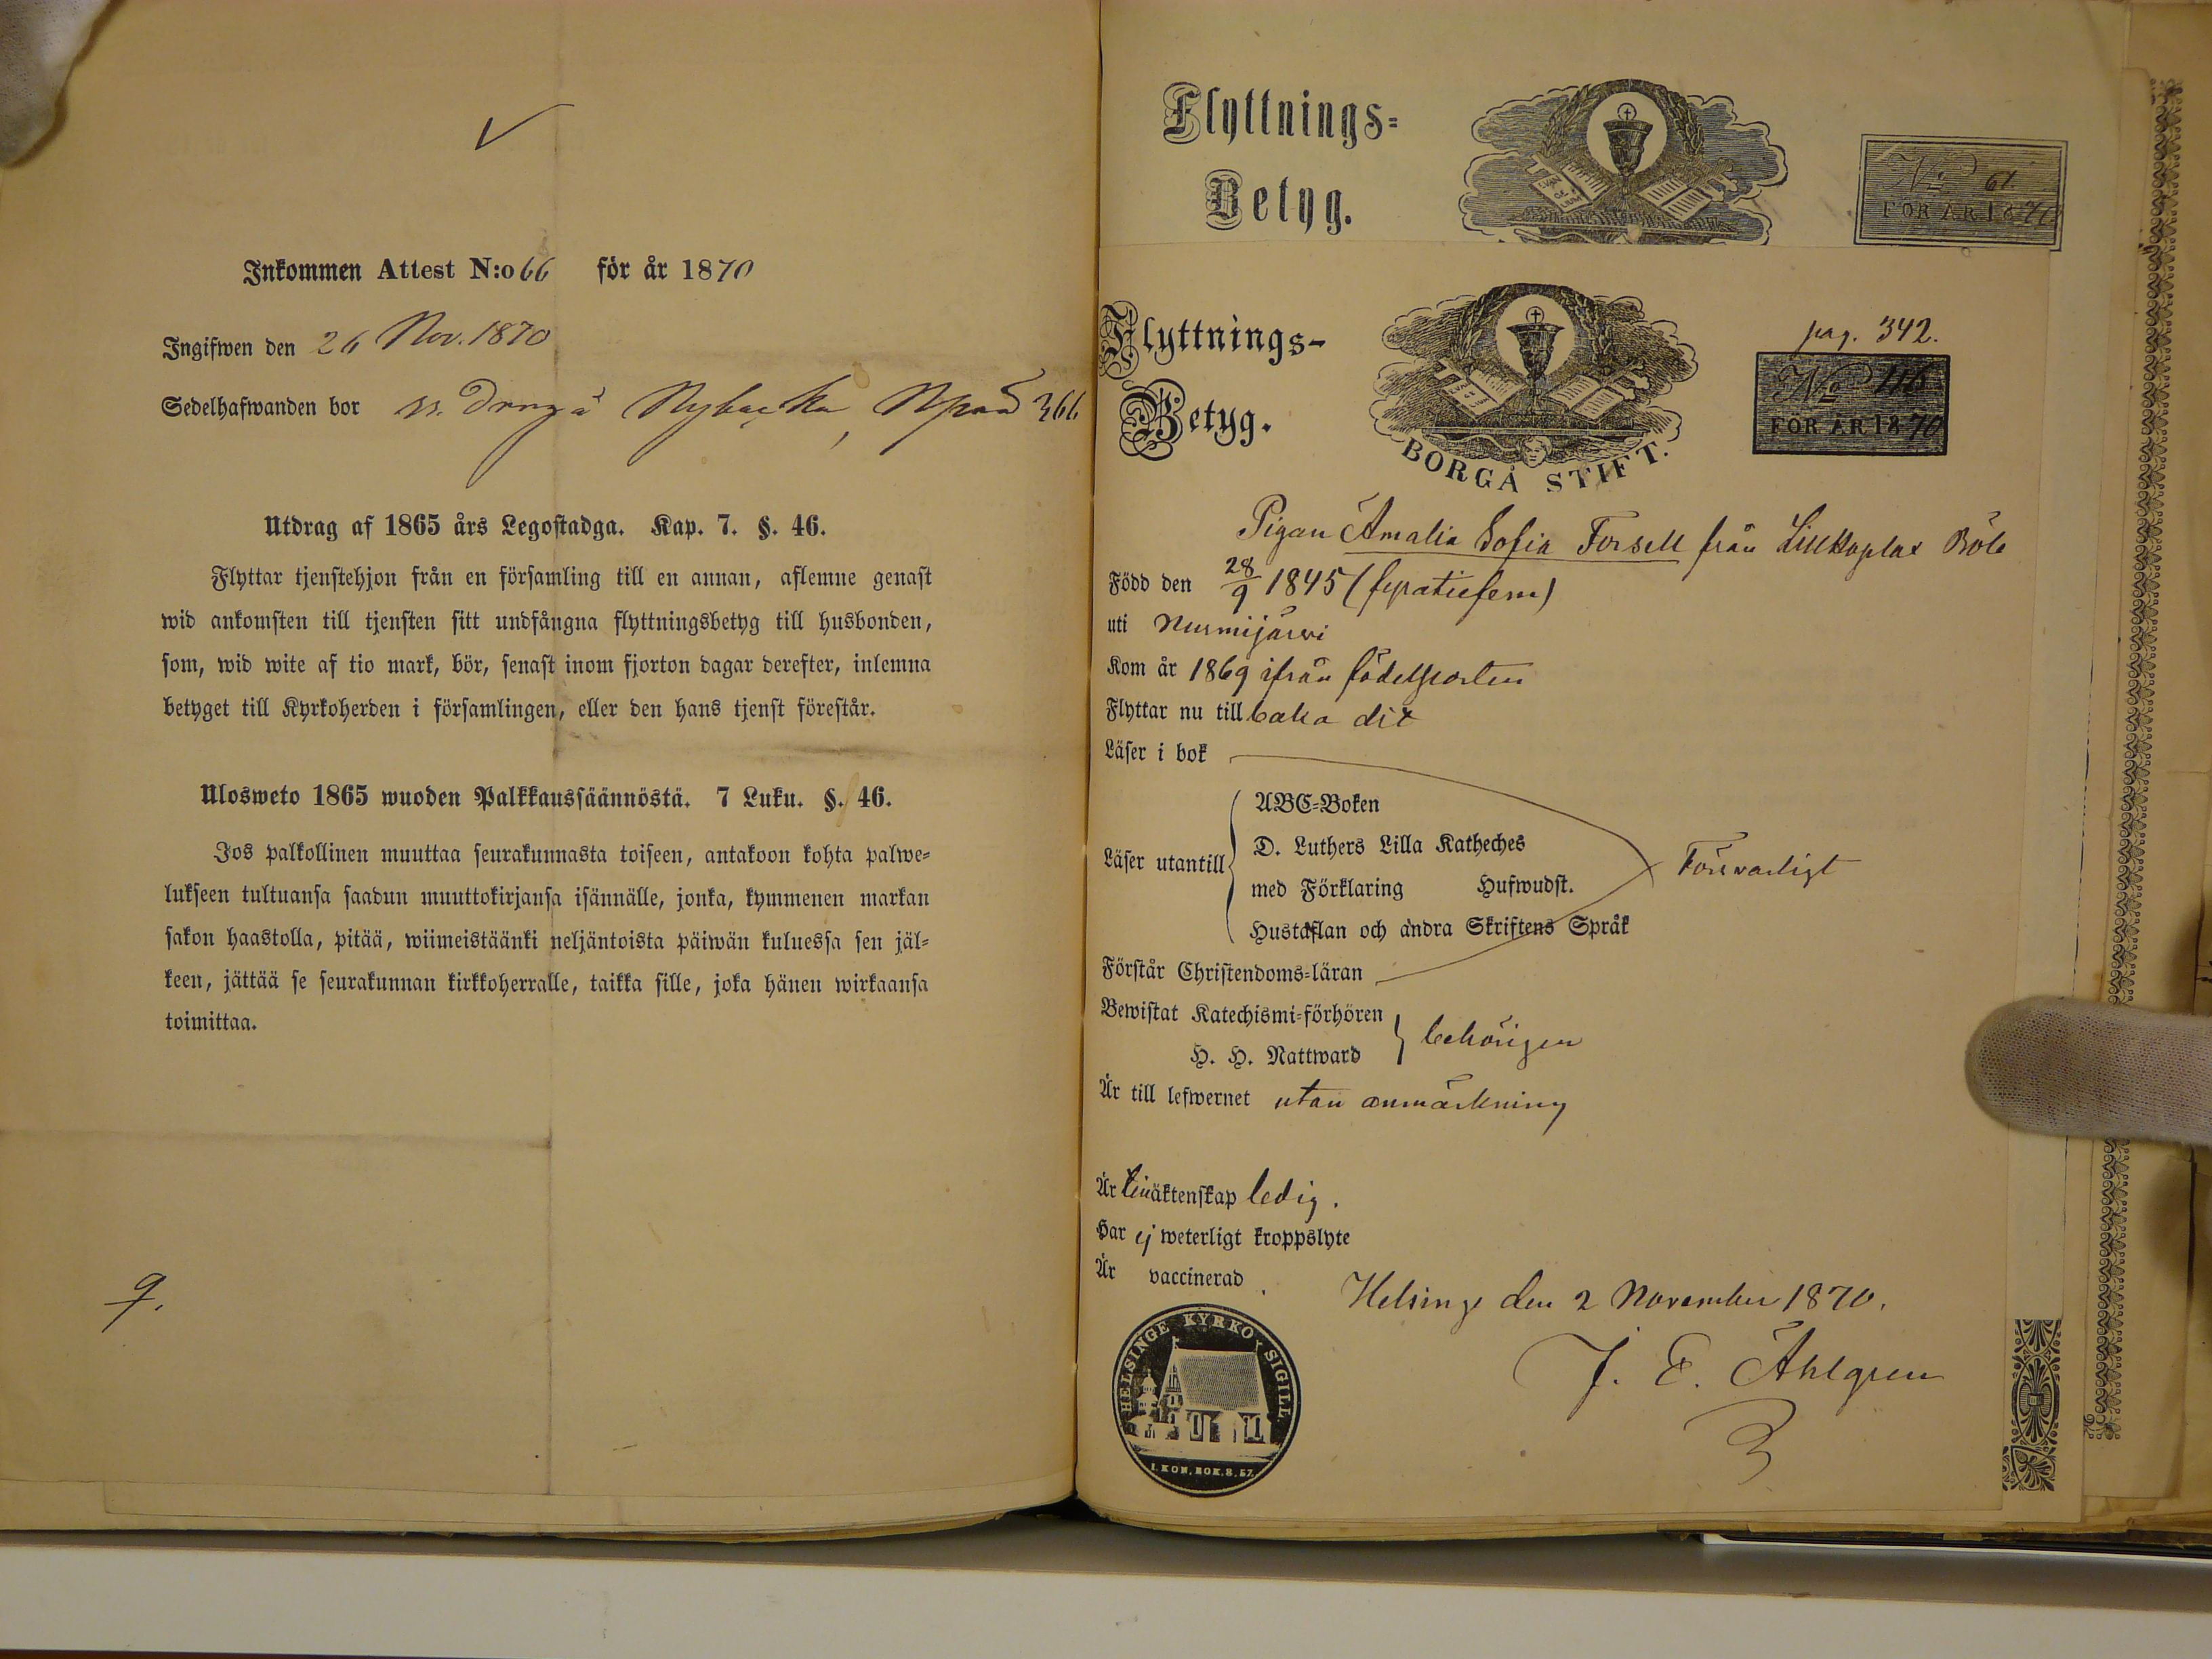 Inkommen Attest N:o 66 för år 1870
Ingifwen den 26 Nov. 1870
Sedelhafwanden bor på Nybacka, 366
Utdrag af 1865 års Legostadga. Kap. 7. §. 46.
Flyttar tjenstehjon från en församling till en annan, aflemne genast
wid ankomsten till tjensten sitt undfångna flyttningsbetyg till husbonden,
som, wid wite af tio mark, bör, senast inom fjorton dagar derefter, inlemna
betyget till Kyrkoherden i församlingen, eller den hans tjenst förestår.
Ulosweto 1865 wuoden Palkkaussäännöstä. 7 Luku. §. 46.
Jos palkollinen muuttaa seurakunnasta toiseen, antakoon kohta palwe=
lukseen tultuansa saadun muuttokirjansa isännälle, jonka, kymmenen markan
sakon haastolla, pitää, wiimeistäänki neljäntoista päiwän kuluessa sen jäl=
keen, jättää se seurakunnan kirkkoherralle, taikka sille, joka hänen wirkaansa
toimittaa.
9.
Flyttnings=
Betyg.
No 61.
FÖR ÅR 1870
Flyttnings-
Betyg.
BORGÅ STIFT.
pag. 342.
No 116
FÖR ÅR 1870
Pigan Amalia Sofia Forsell från Lillhoplax Böle
Född den 28/9 1845 (fyratiofem)
uti Nurmijärvi
Kom år 1869 ifrån födelseorten
Flyttar nu tillbaka dit
Läser i bok
Läser utantill
ABC=Boken
D. Luthers Lilla Katheches
med Förklaring Hufwudst.
Hustaflan och andra Skriftens Språk
Försvarligt
Förstår Christendoms=läran
Bewistat Katechismi=förhören
H. H. Nattward
behörigen
Är till lefwernet utan anmärkning
Är till äktenskap ledig.
Har ej weterligt kroppslyte
Är vaccinerad.
Helsinge den 2 November 1870.
J. E. Åhlgren
HELSINGE KYRKO SIGILL
I. KON. BOK. 8. 57.